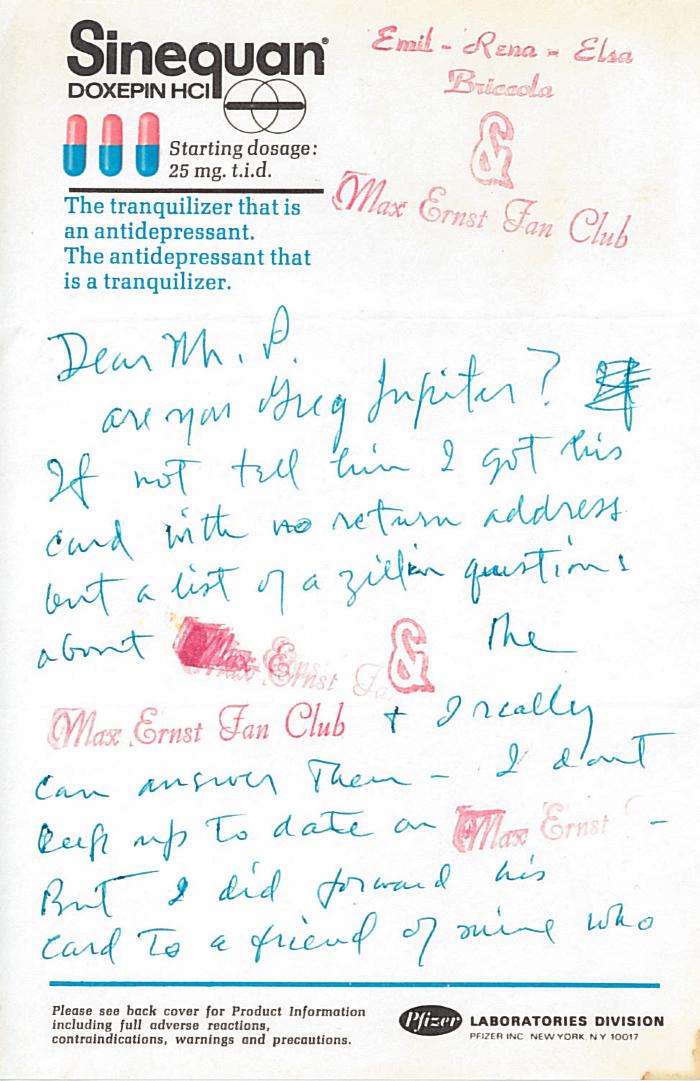 Sinequan®
DOXEPIN HCl
Starting dosage:
25 mg. t.i.d.
The tranquilizer that is
an antidepressant.
The antidepressant that
is a tranquilizer.
Emil - Rena - Elsa
Briccola
&
Max Ernst Fan Club
Dear Mr. P.
are you Greg Jupiter?
If not tell him I got his
card with no return address
but a list of a zillion questions
about Max Ernst Fa & The
Max Ernst Fan Club + I really
can answer them - I dont
keep up to date on Max Ernst -
But I did forward his
card to a friend of mine who
Please see back cover for Product Information
including full adverse reactions,
contraindications, warnings and precautions.
Pfizer LABORATORIES DIVISION
PFIZER INC. NEW YORK, N.Y. 10017